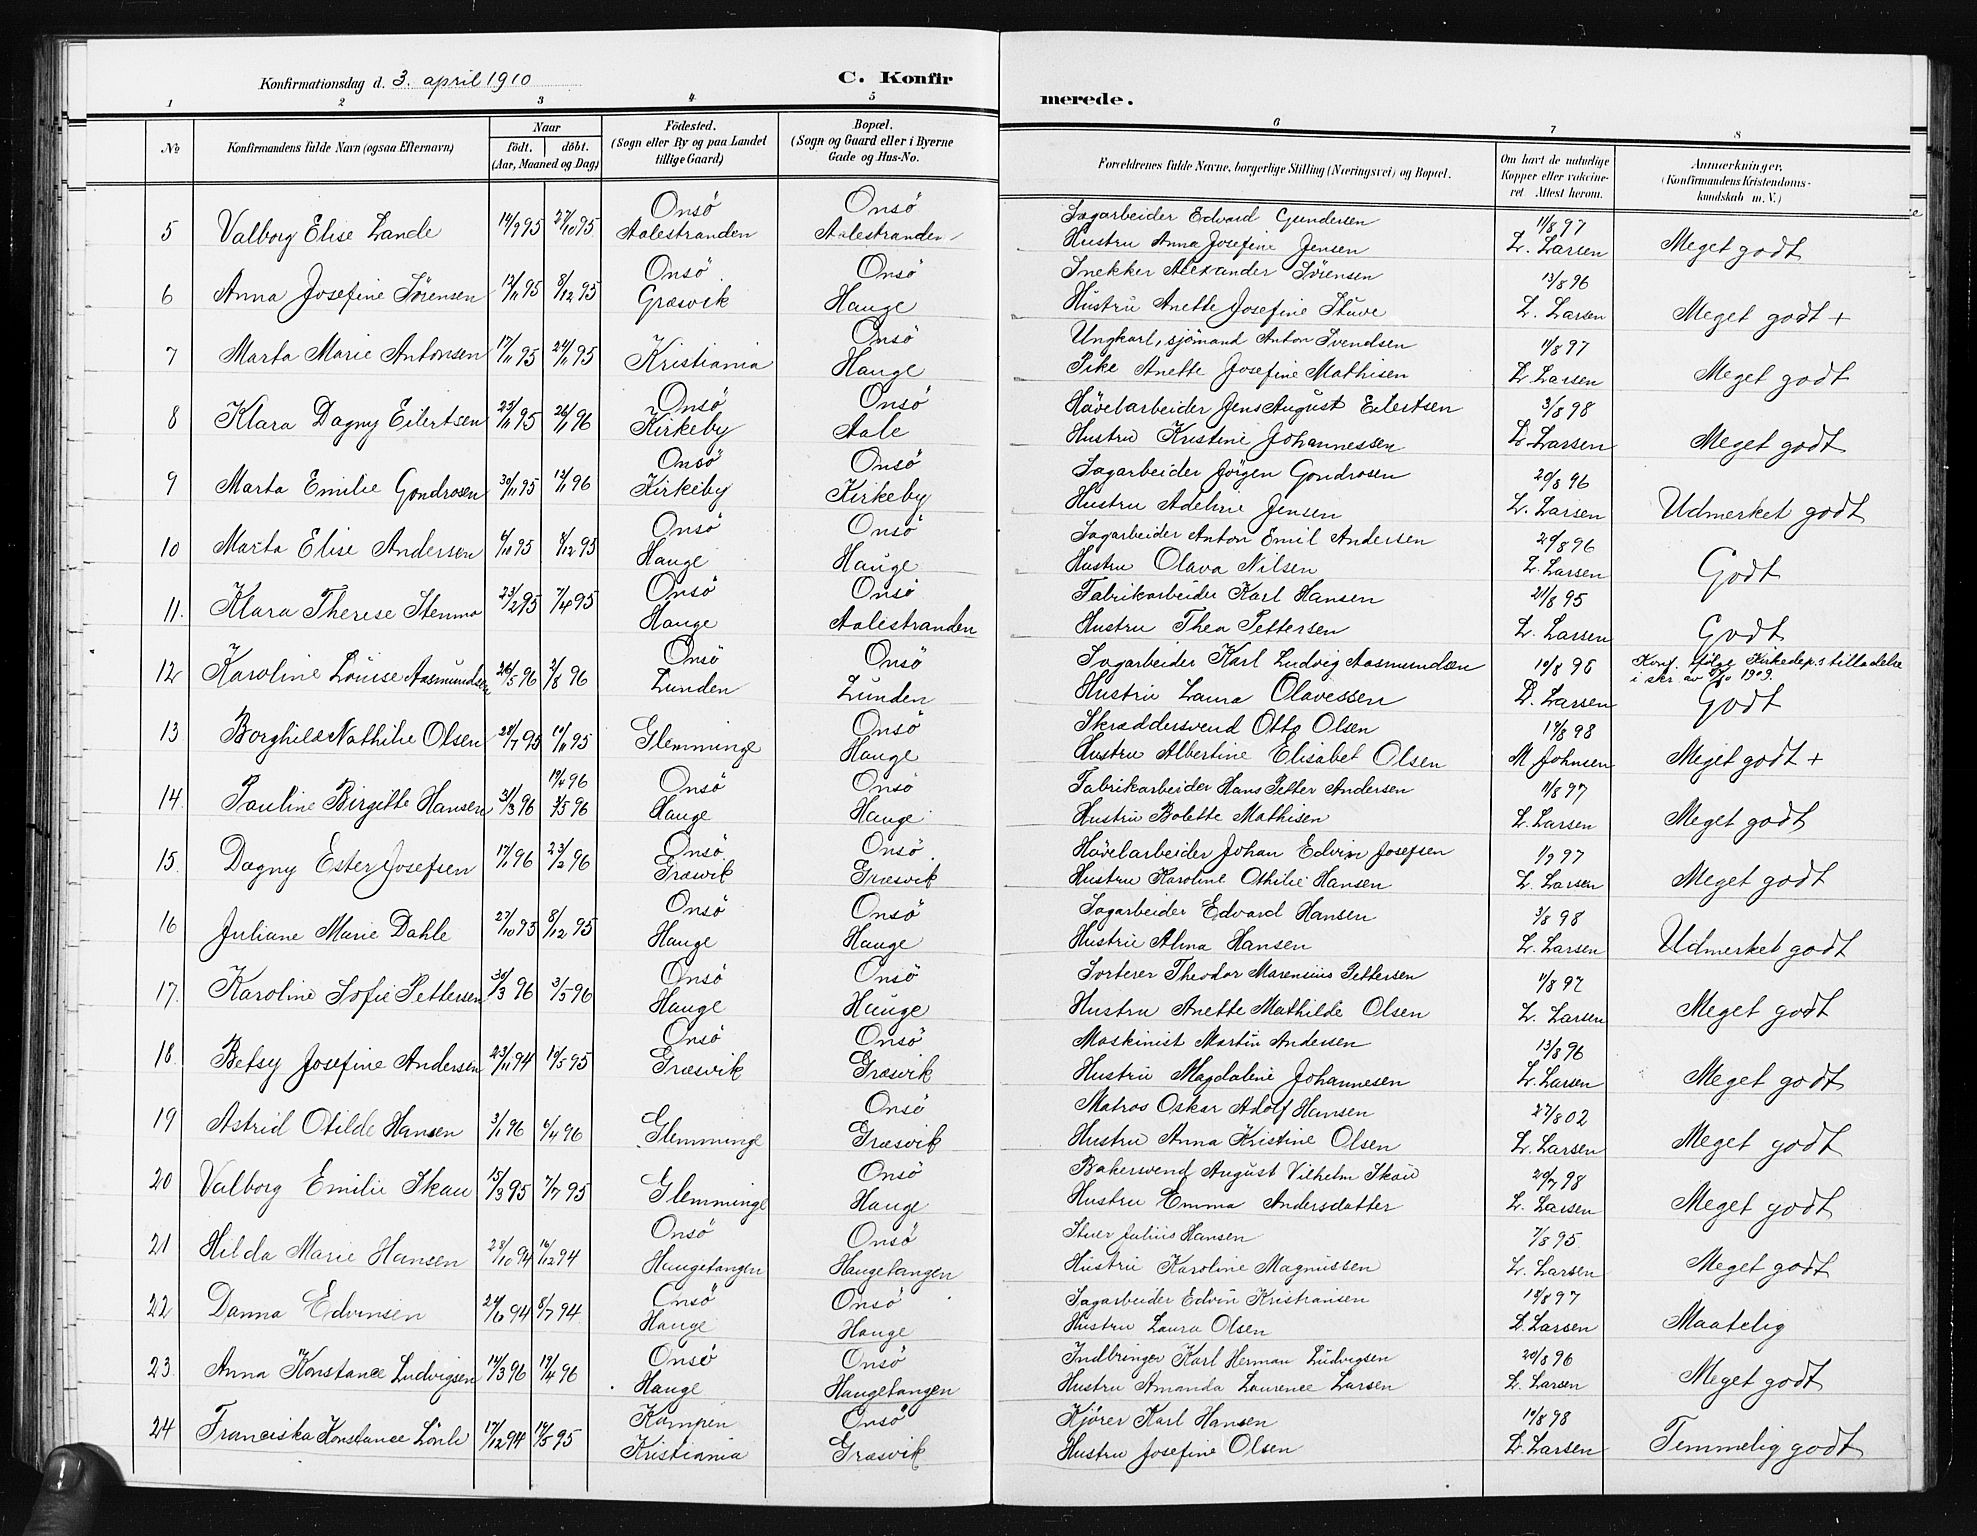 Konfirmationsdag d. 3. april 1910
C. Konfir
merede.
1 2 3 4 5 6 7 8
No
Konfirmandens fulde Navn (ogsaa Efternavn)
Naar
født. døbt.
(Aar, Maaned og Dag)
Fødested.
(Sogn eller By og paa Landet
tillige Gaard)
Bopæl.
(Sogn og Gaard eller i Byerne
Gade og Hus-No.
Forældrenes fulde Navne, borgerlige Stilling (Næringsvei) og Bopæl.
Om havt de naturlige
Kopper eller vaccine-
ret Attest herom.
Anmærkninger.
(Konfirmandens Kristendoms-
kundskab m. V.)
Onsö Onsö Sagarbeider Edvard Gundersen 11/8 97
5 Valborg Elise Lande 14/9 95 27/10 95 Aalestranden Aalestranden Hustru Anna Josefine Jensen L. Larsen Meget godt
Onsö Onsö Snekker Alexander Sörensen 13/8 96
6 Anna Josefine Sörensen 8/12 95 Græsvik Hauge Hustru Anette Josefine Stuve L. Larsen Meget godt +
Onsö Ungkarl, sjömand Anton Svendsen 11/8 97
7 Marta Marie Antonsen 17/11 95 24/11 95 Kristiania Hauge Pike Anette Josefine Mathisen L. Larsen Meget godt
Onsö Onsö Hövelarbeider Jens August Eilertsen 3/8 98
8 Klara Dagny Eilertsen 25/11 95 26/1 96 Kirkeby Aale Hustru Kristine Johannessen L. Larsen Meget godt
Onsö Onsö Sagarbeider Jörgen Gondrosen 20/8 96
9 Marta Emilie Gondrosen 30/11 95 12/1 96 Kirkeby Kirkeby Hustru Adeline Jensen L. Larsen Udmerket godt
Onsö Onsö Sagarbeider Anton Emil Andersen 20/8 96
10 Marta Elise Andersen 8/12 95 Hauge Hauge Hustru Olava Nilsen L. Larsen Godt
Onsö Onsö Fabrikarbeider Karl Hansen 21/8 95
11. Klara Therese Stenmo 23/2 95 7/4 95 Hauge Aalestranden Hustru Thea Pettersen L. Larsen Godt
Onsö Onsö Sagarbeider Karl Ludvig Aasmundsen 10/8 96 Konf. ifölge Kirkedep.s tilladelse
12 Karoline Louise Aasmundsen 26/5 96 2/8 96 Lunden Lunden Hustru Laura Olavessen L. Larsen i skr. av 1909. Godt
Onsö Skræddersvend Otto Olsen 17/8 98
13 Borghild Nathilie Olsen 28/7 95 Glemminge Hauge Hustru Albertine Elisabet Olsen M Johnsen Meget godt +
19/4 96 Onsö Onsö Fabrikarbeider Hans Petter Andersen 11/8 97
14. Pauline Birgitte Hansen 31/3 96 3/5 96 Hauge Hauge Hustru Bolette Mathisen L. Larsen Meget godt
Onsö Onsö Hövelarbeider Johan Edvin Josefsen 1/9 97
15. Dagny Ester Josefsen 17/1 96 23/2 96 Græsvik Græsvik Hustru Karoline Othilie Hansen L. Larsen Meget godt
Onsö Onsö Sagarbeider Edvard Hansen 3/8 98
16 Juliane Marie Dahle 27/10 95 8/12 95 Hauge Hauge Hustru Alma Hansen L. Larsen Udmerket godt
Onsö Onsö Sorterer Theodor Marensius Pettersen 11/8 97
17. Karoline Sofie Pettersen 30/3 96 3/5 96 Hauge Hauge Hustru Anette Mathilde Olsen L. Larsen Meget godt
Onsö Onsö Maskinist Martin Andersen 13/8 96
18. Betsy Josefine Andersen 23/11 94 19/5 95 Græsvik Græsvik Hustru Magdaline Johannesen L. Larsen Meget godt
Onsö Matros Oskar Adolf Hansen 27/8 02
19 Astrid Otilde Hansen 3/1 96 6/4 96 Glemminge Græsvik Hustru Anna Kristine Olsen L. Larsen Meget godt
Onsö Bakersvend August Vilhelm Skau 20/7 98
20 Valborg Emilie Skau 15/3 95 7/7 95 Glemminge Hauge Hustru Emma Andersdatter L. Larsen Meget godt
Onsö Onsö Stuer Julius Hansen 7/8 95
21 Hilda Marie Hansen 28/10 94 16/12 94 Haugetangen Haugetangen Hustru Karoline Magnussen L. Larsen Meget godt
Onsö Onsö Sagarbeider Edvin Kristiansen 18/8 97
22 Danna Edvinsen 24/6 94 8/7 94 Hauge Hauge Hustru Laura Olsen L. Larsen Maatelig
Onsö Onsö Indbringer Karl Herman Ludvigsen 20/8 96
23. Anna Konstance Ludvigsen 14/3 96 19/4 96 Hauge Haugetangen Hustru Amanda Laurence Larsen L. Larsen Meget godt
Kampen Onsö Kjörer Karl Hansen 10/8 98
24 Franciska Konstance Lönli 17/12 94 Kristiania Græsvik Hustru Josefine Olsen L. Larsen Temmelig godt